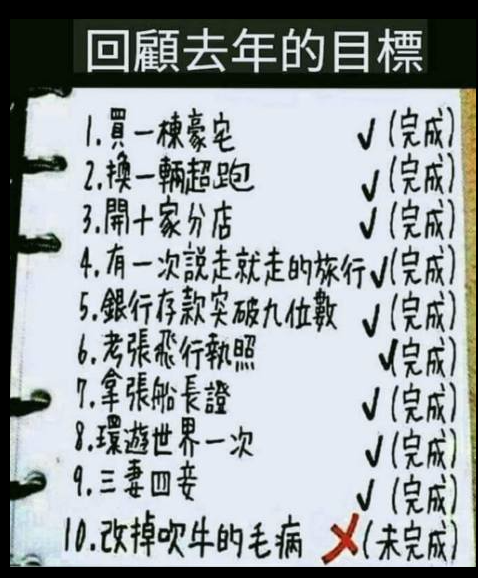 回顧去年的目標
1.買一棟豪宅 ✓(完成)
2.換一輛超跑 ✓(完成)
3.開十家分店 ✓(完成)
4.有一次説走就走的旅行✓(完成)
5.銀行存款突破九位數 ✓(完成)
6.考張飛行執照 ✓(完成)
7.拿張船長證 ✓(完成)
8.環遊世界一次 ✓(完成)
9.三妻四妾 ✓(完成)
10.改掉吹牛的毛病 ✗(未完成)